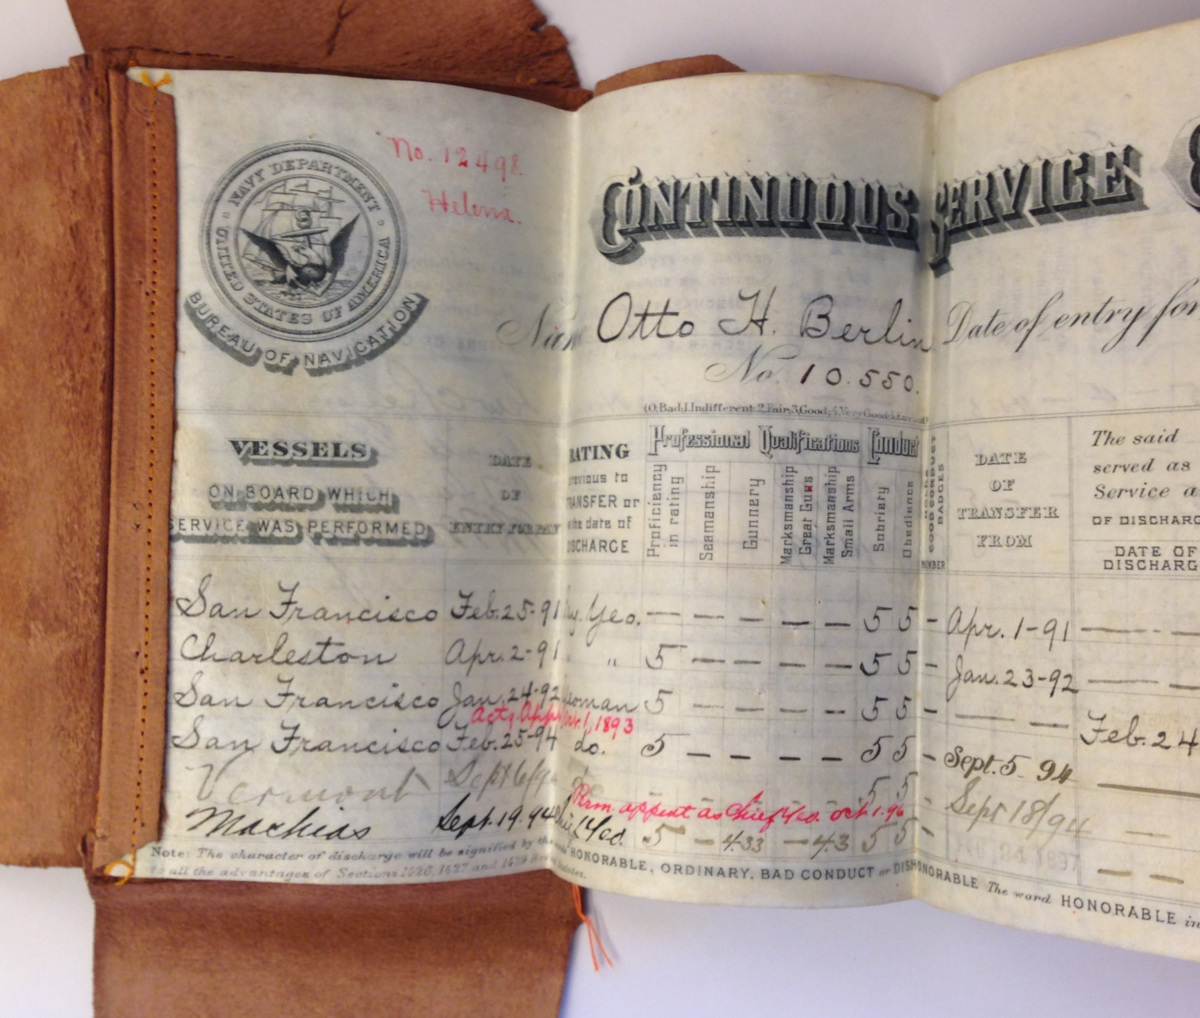 NAVY DEPARTMENT
UNITED STATES OF AMERICA
BUREAU OF NAVIGATION
No. 12498.
Helena.
CONTINUOUS SERVICE
Name Otto H. Berlin Date of entry for
No. 10.550.
(0, Bad; 1, Indifferent; 2, Fair; 3, Good; 4, Very Good; 5, Excellent)
VESSELS
ON BOARD WHICH
SERVICE WAS PERFORMED
DATE
OF
ENTRY FOR PAY
RATING
previous to
TRANSFER or
the date of
DISCHARGE
Professional Qualifications
Proficiency in rating
Seamanship
Gunnery
Marksmanship Great Guns
Marksmanship Small Arms
Conduct
Sobriety
Obedience
NUMBER GOOD CONDUCT BADGES
DATE
OF
TRANSFER
FROM
The said
served as
Service a
OF DISCHARG
DATE OF
DISCHARG
San Francisco Feb. 25-91 Yeo. — — — — — 5 5 - Apr. 1-91 —
Charleston Apr. 2-91 " 5 — — — — 5 5 - Jan. 23-92 —
San Francisco Jan. 24-92 5 — — — — 5 5 - — Feb. 24
1, 1893
San Francisco Feb. 25-94 do. 5 — — — — 5 5 - Sept. 5-94 —
Vermont Sept 6/94 — — — — 5 5 - Sept 18/94 —
Perm. appost as Chief Yeo. Oct 1. 96
Machias Sept. 19. 94 Yeo. 5 — 433 — 43 5 5 - — —
Note: The character of discharge will be signified by the words HONORABLE, ORDINARY, BAD CONDUCT or DISHONORABLE The word HONORABLE in
to all the advantages of Sections 1426, 1427 and 1429 Statutes.